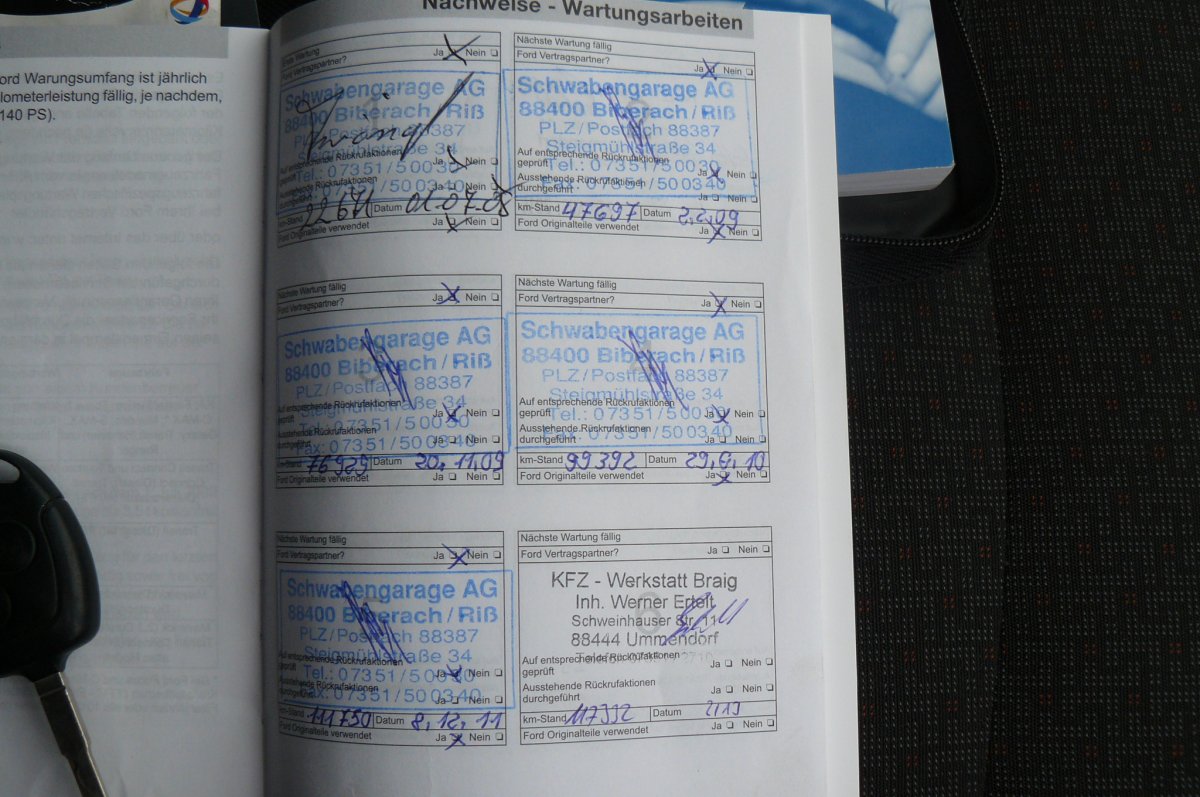 ord Warungsumfang ist jährlich
lometerleistung fällig, je nachdem,
140 PS).
Nachweise - Wartungsarbeiten
Wartung
Ford Vertragspartner?
Ja Nein
Schwabengarage AG
88400 Biberach/Riß
PLZ/Postfach 88387
Steigmühlstraße 34
Auf entsprechende Rückrufaktionen
Ja Nein
Ausstehende Rückrufaktionen
durchgeführt
Ja Nein
km-Stand 22671 Datum 01-07-08
Ford Originalteile verwendet Ja Nein
Nächste Wartung fällig
Ford Vertragspartner?
Ja Nein
Schwabengarage AG
88400 Biberach/Riß
PLZ/Postfach 88387
Steigmühlstraße 34
Auf entsprechende Rückrufaktionen
geprüft
Tel.: 07351/50030
Ja Nein
Ausstehende Rückrufaktionen
durchgeführt
Fax: 07351/500340
Ja Nein
km-Stand 47697 Datum 2,2,09
Ford Originalteile verwendet Ja Nein
Nächste Wartung fällig
Ford Vertragspartner? Ja Nein
Schwabengarage AG
88400 Biberach/Riß
PLZ/Postfach 88387
Steigmühlstraße 34
Auf entsprechende Rückrufaktionen
geprüft
Tel.: 07351/50030
Ja Nein
Ausstehende Rückrufaktionen
durchgeführt
Fax: 07351/500340
Ja Nein
km-Stand 76929 Datum 20,11,09
Ford Originalteile verwendet Ja Nein
Nächste Wartung fällig
Ford Vertragspartner? Ja Nein
Schwabengarage AG
88400 Biberach/Riß
PLZ/Postfach 88387
Steigmühlstraße 34
Auf entsprechende Rückrufaktionen
geprüft
Tel.: 07351/50030
Ja Nein
Ausstehende Rückrufaktionen
durchgeführt
Fax: 07351/500340
Ja Nein
km-Stand 99392 Datum 29,6,10
Ford Originalteile verwendet Ja Nein
Nächste Wartung fällig
Ford Vertragspartner? Ja Nein
Schwabengarage AG
88400 Biberach/Riß
PLZ/Postfach 88387
Steigmühlstraße 34
Auf entsprechende Rückrufaktionen
geprüft
Tel.: 07351/50030
Ja Nein
Ausstehende Rückrufaktionen
durchgeführt
Fax: 07351/500340
Ja Nein
km-Stand 111750 Datum 8,12,11
Ford Originalteile verwendet Ja Nein
Nächste Wartung fällig
Ford Vertragspartner? Ja Nein
KFZ - Werkstatt Braig
Inh. Werner Ertelt
Schweinhauser Str. 11
88444 Ummendorf
6
Auf entsprechende Rückrufaktionen
geprüft
Ja Nein
Ausstehende Rückrufaktionen
durchgeführt
Ja Nein
km-Stand 117392 Datum
Ford Originalteile verwendet Ja Nein